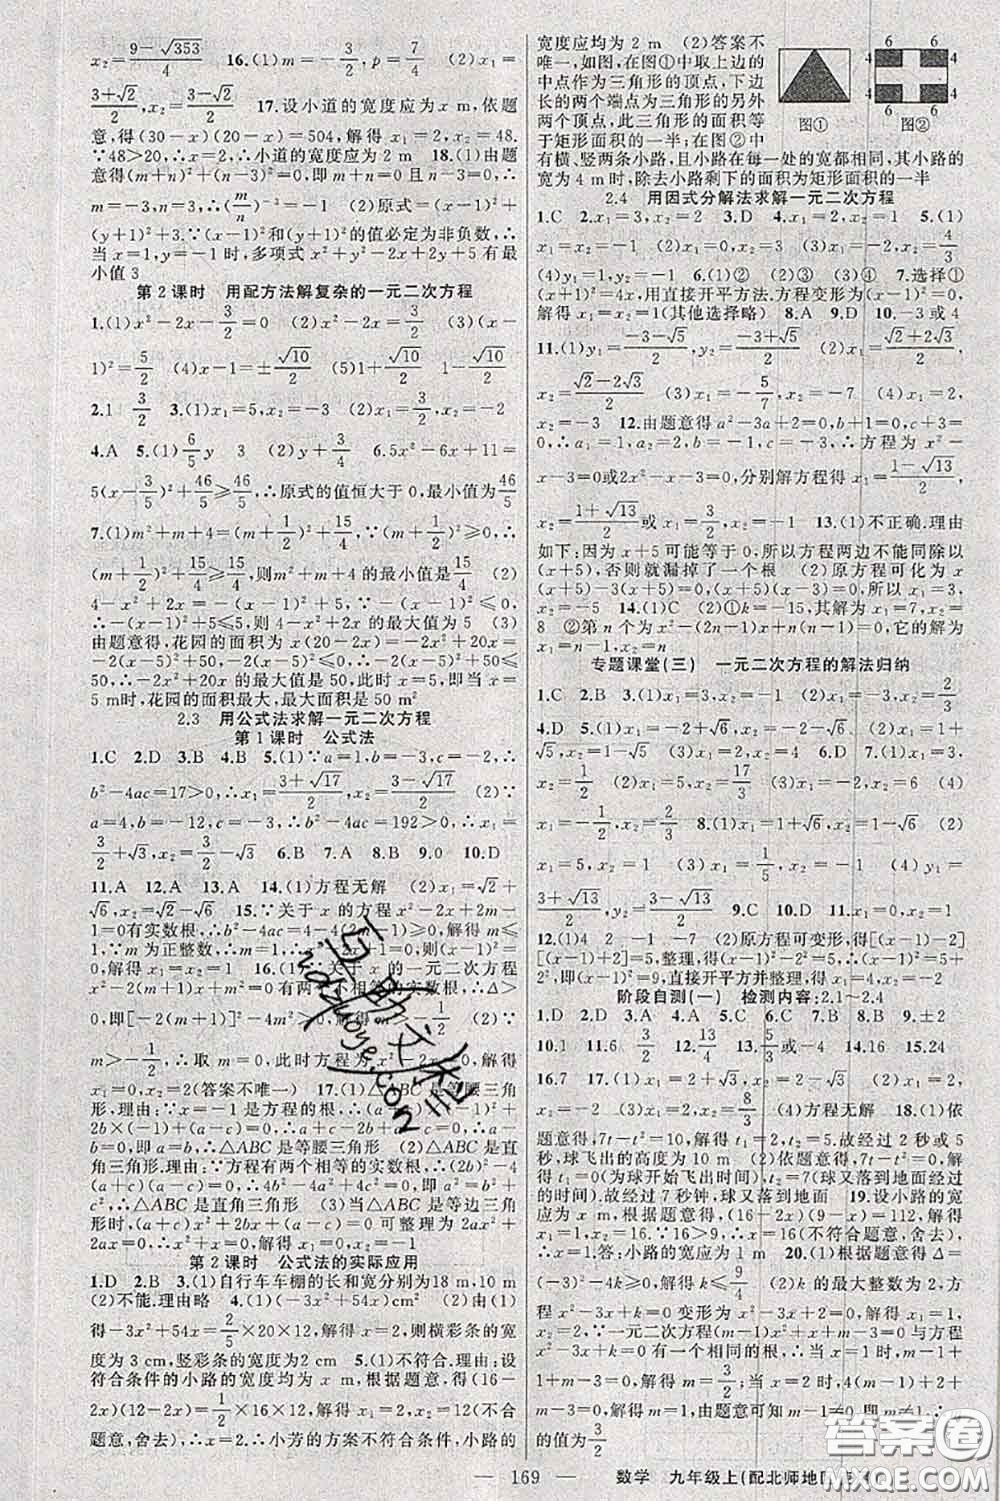 x₂=(9-√353)/4　16.(1)m=-3/2,p=7/4　(2)x₁=
(3+√2)/2,x₂=(3-√2)/2　17.设小道的宽度应为x m,依题
意,得(30-x)(20-x)=504,解得x₁=2,x₂=48.
∵48>20,∴x=2,∴小道的宽度应为2 m　18.(1)由题
意得(m+n)²+(n-3)²=0,即m+n=0且n-3=0,∴
n=3,∴m=-3,∴
(y+1)²+3,∵(x-1)²和(y+1)²的值必定为非负数,∴
当x=1,y=-1时,多项式x²+y²-2x+2y+5有最
小值3
第2课时　用配方法解复杂的一元二次方程
1.(1)x²-2x-3/2=0　(2)x²-2x=3/2　(3)(x-
1)²=5/2　(4)x-1=±√10/2　(5)1+√10/2　1-√10/2
2.1　3/2　3.(1)x₁=5,x₂=-3　(2)x₁=3/2,x₂=-2
4.A　5.(1)6/5 y　3　(2)x+3/4　6.5x²-6x+11=
5(x-3/5)²+46/5≥46/5,∴原式的值恒大于0,最小值为46/5
7.(1)m²+m+4=(m+1/2)²+15/4,∵(m+1/2)²≥0,∴
(m+1/2)²+15/4≥15/4,则m²+m+4的最小值是15/4　(2)
4-x²+2x=-(x-1)²+5,∵-(x-1)²≤0,
∴-(x-1)²+5≤5,则4-x²+2x的最大值为5　(3)
由题意,得花园的面积为x(20-2x)=-2x²+20x=
-2(x-5)²+50,∵-2(x-5)²≤0,
-2(x-5)²+50的最大值是50,此时x=5,则当x=
5 m时,花园的面积最大,最大面积是50 m²
2.3　用公式法求解一元二次方程
第1课时　公式法
1.C　2.D　3.B　4.B　5.(1)∵a=1,b=-3,c=-2,∴
b²-4ac=17>0,∴x₁=(3+√17)/2,x₂=(3-√17)/2　(2)∵
a=4,b=-12,c=-3,∴b²-4ac=192>0,∴x₁=
3/2+√3,x₂=3/2-√3　6.B　7.B　8.C　9.B　10.D
11.A　12.A　13.D　14.(1)方程无解　(2)x₁=√2+
√6,x₂=√2-√6　15.∵关于x的方程x²-2x+2m-
1=0有实数根,∴b²-4ac=4-4(2m-1)≥0,解得m≤
1,∵m为正整数,∴m=1,则x²-2x+1=0,
解得x₁=x₂=1　16.(1)∵关于x的一元二次方程
=0有两个不相等的实数根,∴Δ>
0,即[-2(m+1)]²-　(2)∵
m>-1/2,∴取m=0,此时方程为x²-2x=0,解得
x₁=0,x₂=2(答案不唯一)　17.(1)△ABC是等腰三角
形.理由:∵x=-1是方程的根,∴(a+c)×(-1)²+
2b×(-1)+(a-c)=0,∴a+c-2b+a-c=0,∴a-
b=0,即a=b,∴△ABC是等腰三角形　(2)△ABC是直
角三角形.理由:∵方程有两个相等的实数根,∴(2b)²-4
(a+c)(a-c)=0,∴4b²-4a²+4c²=0,∴a²=b²+
c²,∴△ABC是直角三角形　(3)当△ABC是等边三角
形时,(a+c)x²+2bx+(a-c)=0可整理为2ax²+
2ax=0,∴x²+x=0,解得x₁=0,x₂=-1
第2课时　公式法的实际应用
1.D　2.B　3.(1)自行车车棚的长和宽分别为18 m,10 m
(2)不能.理由略　4.(1)(-3x²+54x)cm²　(2)由(1)
得-3x²+54x=2/5×20×12,解得x=2,则横彩条的宽
度为3 cm,竖彩条的宽度为2 cm　5.(1)不符合.理由:设
符合条件的小路的宽度均为x m,根据题意,得(16-
2x)(12-2x)=1/2×16×12,解得x₁=2,x₂=12(不合
题意,舍去),∴x=2,∴小芳的方案不符合条件,小路的
宽度应均为2 m　(2)答案不
唯一,如图,在图①中取上边的
中点作为三角形的顶点,下边
长的两个端点为三角形的另外
两个顶点,此三角形的面积等
于矩形面积的一半;在图②中
有横、竖两条小路,且小路在每一处的宽都相同,其小路的
宽为4 m时,除去小路剩下的面积为矩形面积的一半
6　6
4　4
4　4
6　6
图①　图②
2.4　用因式分解法求解一元二次方程
1.C　2.x₁=3,x₂=9　3.D　4.x₁=2,x₂=1　5.(1)
(4)y₁=1,y₂=-2/3　6.(1)②　(2)①　(3)④　(4)③　7.选择①
x²-2x+1=0,用直接开平方法.方程变形为(x-1)²=0,
解得x₁=x₂=1(其他选择略)　8.A　9.D　10.-3或4
11.(1)y₁=(-3-√5)/2,y₂=(-3+√5)/2　(2)x₁=(√2+2√3)/2,
(√2-2√3)/2　(3)x₁=-5/7,x₂=　(4)x₁=2,
x₂=　12.由题意得a²-3a+2=0,b+1=0,c+3=
0,∴a₁=1,a₂=2,b=-1,c=-3,∴方程为x²-
x-3=0或2x²-x-3=0,分别解方程得x₁=(1-√13)/2,
x₂=(1+√13)/2或x₁=3/2,x₂=-1　13.(1)不正确.理由
如下:因为x+5可能等于0,所以方程两边不能同除以
(x+5),否则就漏掉了一个根　(2)原方程可化为x
(x+5)-3(x+5)=0,∴(x+5)(x-3)=0,所以x₁=
-5,x₂=3　14.(1)C　(2)①k=-15,其解为x₁=7,x₂=
8　②第n个为x²-(2n-1)x+n(n-1)=0,它的解为
x₁=n-1,x₂=n
专题课堂(三)　一元二次方程的解法归纳
1.C　2.B　3.(1)x₁=3,x₂=-1　(2)x₁=x₂=2/3
4.D　5.(1)x₁=-2+√6,x₂=-2-√6　(2)x₁=1+
√5,x₂=1-√5　6.D　7.(1)x₁=
(2)x₁=5,x₂=17/3　(3)x₁=2,x₂=6　(4)
x₁=-1/2,x₂=2/3　8.(1)x₁=1+√6,x₂=1-√6　(2)
x₁=5,x₂=1　(3)x₁=-1/2,x₂=4　(4)y₁=
(3+√13)/2,y₂=(3-√13)/2　9.C　10.C　11.x₁=0
12.(1)4　2　-1　-7　(2)原方程可变形,得[(x-1)-2]
[(x-1)+2]=5,整理,得(x-1)²-2²=5,(x-1)²=5+
2²,即(x-1)²=9,直接开平方并整理,得x₁=4,x₂=-2
阶段自测(一)　检测内容:2.1~2.4
1.D　2.D　3.A　4.A　5.C　6.C　7.B　8.B　9.±2
10.1　11.6　3/2　12.13/4　13.5/3或-4　14.　15.24
16.7　17.(1)x₁=2+√3,x₂=2-√3　(2)
(3)x₁=-2,x₂=8/3　(4)方程无解　18.(1)依
题意得,7t-t²=10,解得t₁=2,t₂=5.故经过2秒或5
秒,球飞出的高度为10 m　(2)依题意得,7t-t²=0,解
得t₁=0(为球开始飞出时间),t₂=7(球又落到地面经过
的时间),故经过7秒钟,球又落到地面　19.设小路的宽
应为x m,根据题意得,(16-2x)(9-x)=112,解得
x₁=1,x₂=16.∵16>9,∴x=16不符合题意,舍去,
∴x=1.答:小路的宽应为1 m　20.(1)根据题意得Δ=
(-3)²-4k≥0,解得k≤9/4　(2)k的最大整数为2,方
程x²-3x+k=0变形为x²-3x+2=0,解得x₁=1,
x₂=2,∵一元二次方程(m-1)x²+x+m-3=0与方
程x²-3x+k=0有一个相同的根,∴当x=1时,m-1+
1+m-3=0,解得m=3/2;当x=2时,4(m-1)+2+
m-3=0,解得m=1,由题意可知m-1≠0,∴m
的值为3/2
— 169 —　数学　九年级上(配北师地
答案圈